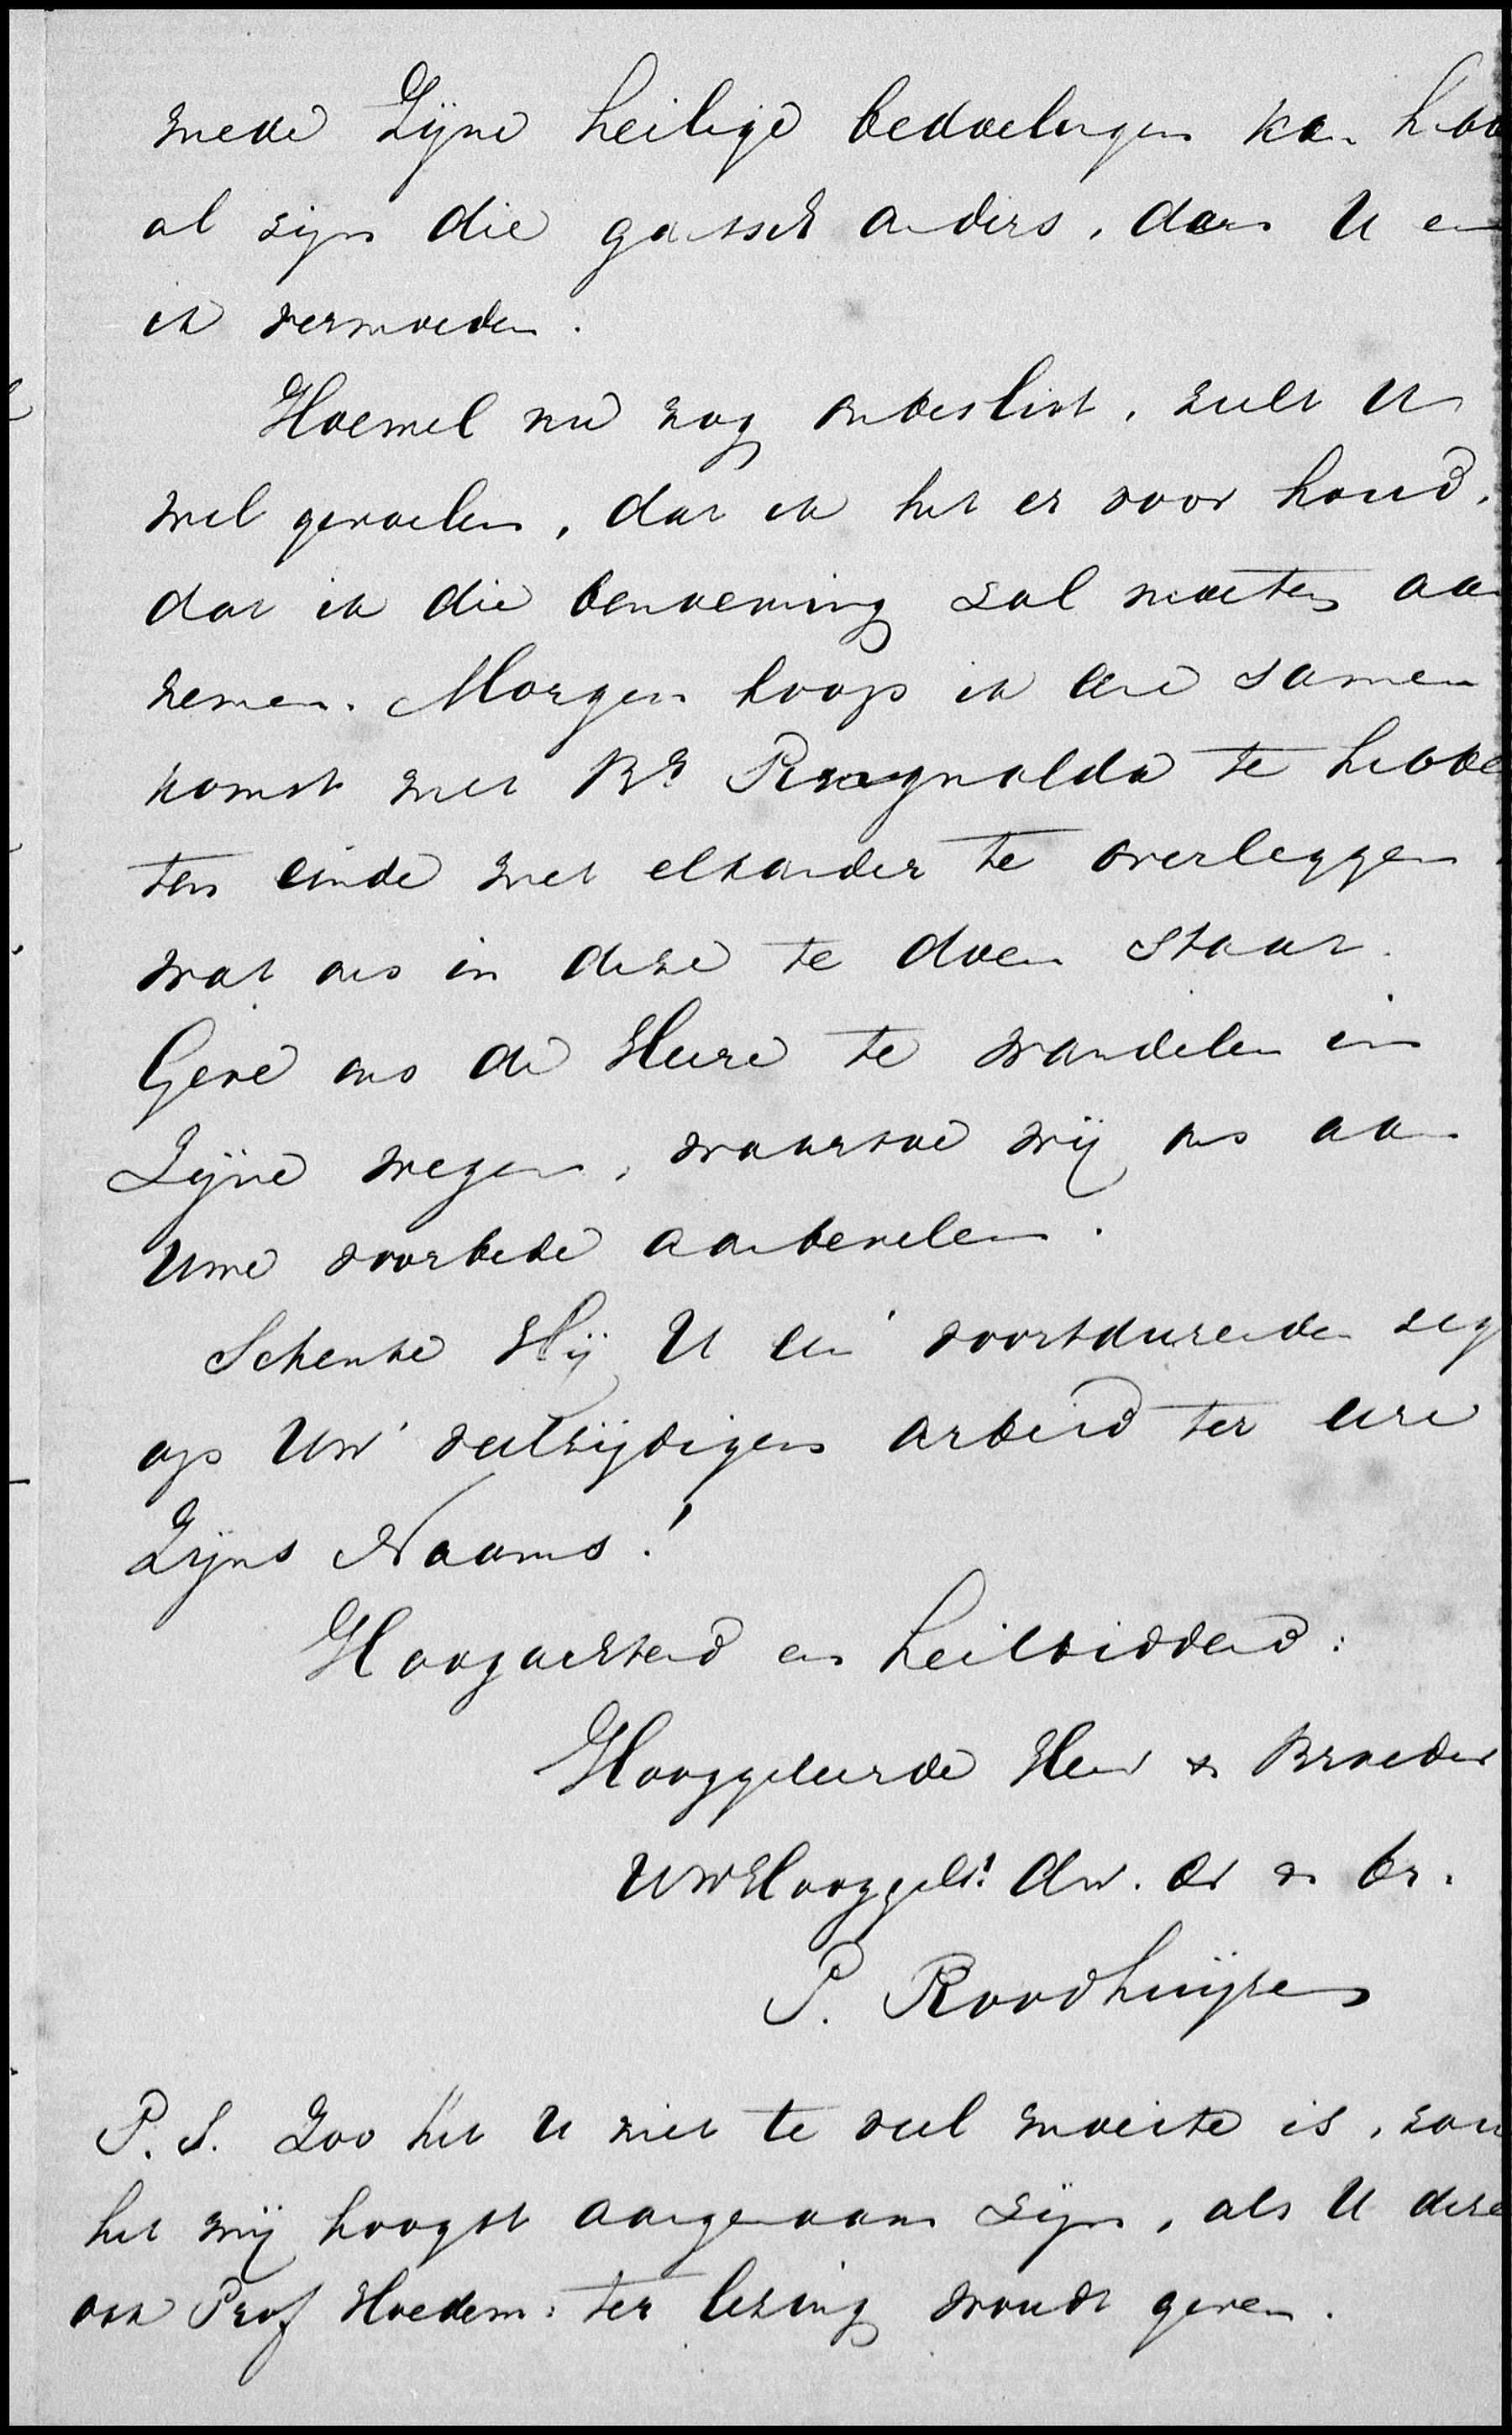 mede Zijne heilige bedoelingen kan hebb
al zijn die gansch anders, dan U en
ik vermoeden.
Hoewel nu nog onbeslist, zult U
wel gevoelen, dat ik het er voor houd,
dat ik die benoeming zal moeten aan
nemen. Morgen hoop ik eene samen
komst met Br Ringnalda te hebbe
ten einde met elkander te overleggen
wat ons in deze te doen staat.
Geve ons de Heere te wandelen in
Zijne wegen, waartoe wij ons aan
Uwe voorbede aanbevelen.
Schenke Hij U een' voortdurenden zeg
op Uw' veelzijdigen arbeid ter eere
Zijns Naams!
Hoogachtend en heilbiddend:
Hooggeleerde Heer & Broeder
UwHooggel: dw. dr & br.
P. Roodhuijzen
P.S. Zoo het U niet te veel moeite is, zou
het mij hoogst aangenaam zijn, als U deze
ook Prof Hoedem: ter lezing woudt geven.